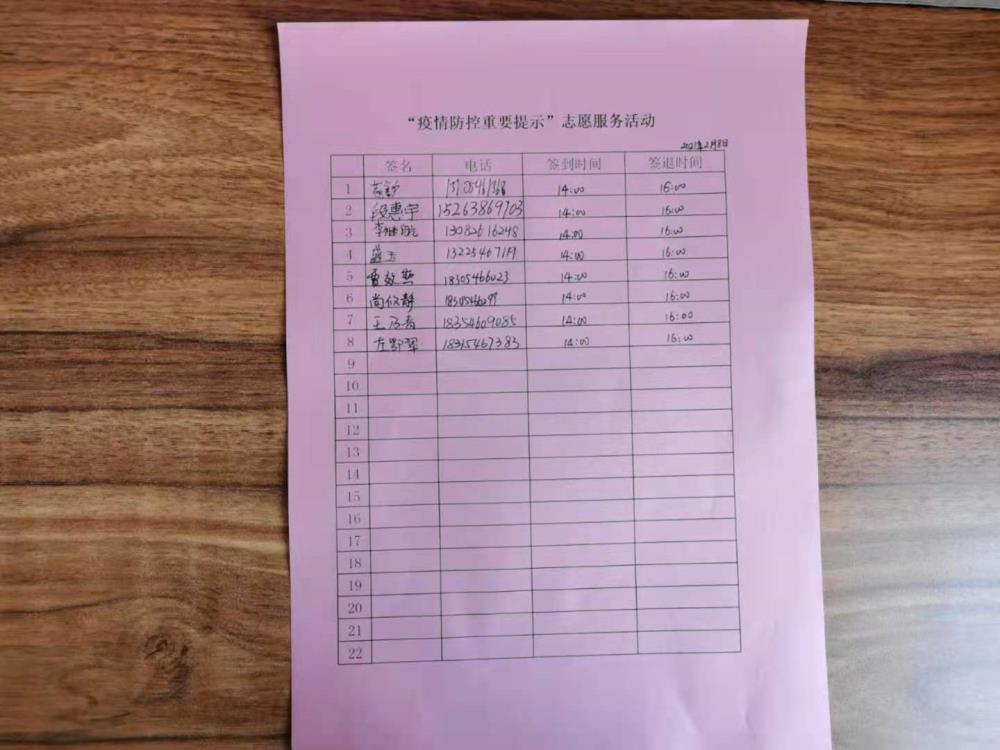 “疫情防控重要提示”志愿服务活动
2021年2月8日
签名 电话 签到时间 签退时间
1 14:00 16:00
2 段惠宇 15263869703 14:00 16:00
3 13082616248 14:00 16:00
4 14:00 16:00
5 18305466023 14:00 16:00
6 14:00 16:00
7 18354609085 14:00 16:00
8 18315467383 14:00 16:00
9
10
11
12
13
14
15
16
17
18
19
20
21
22